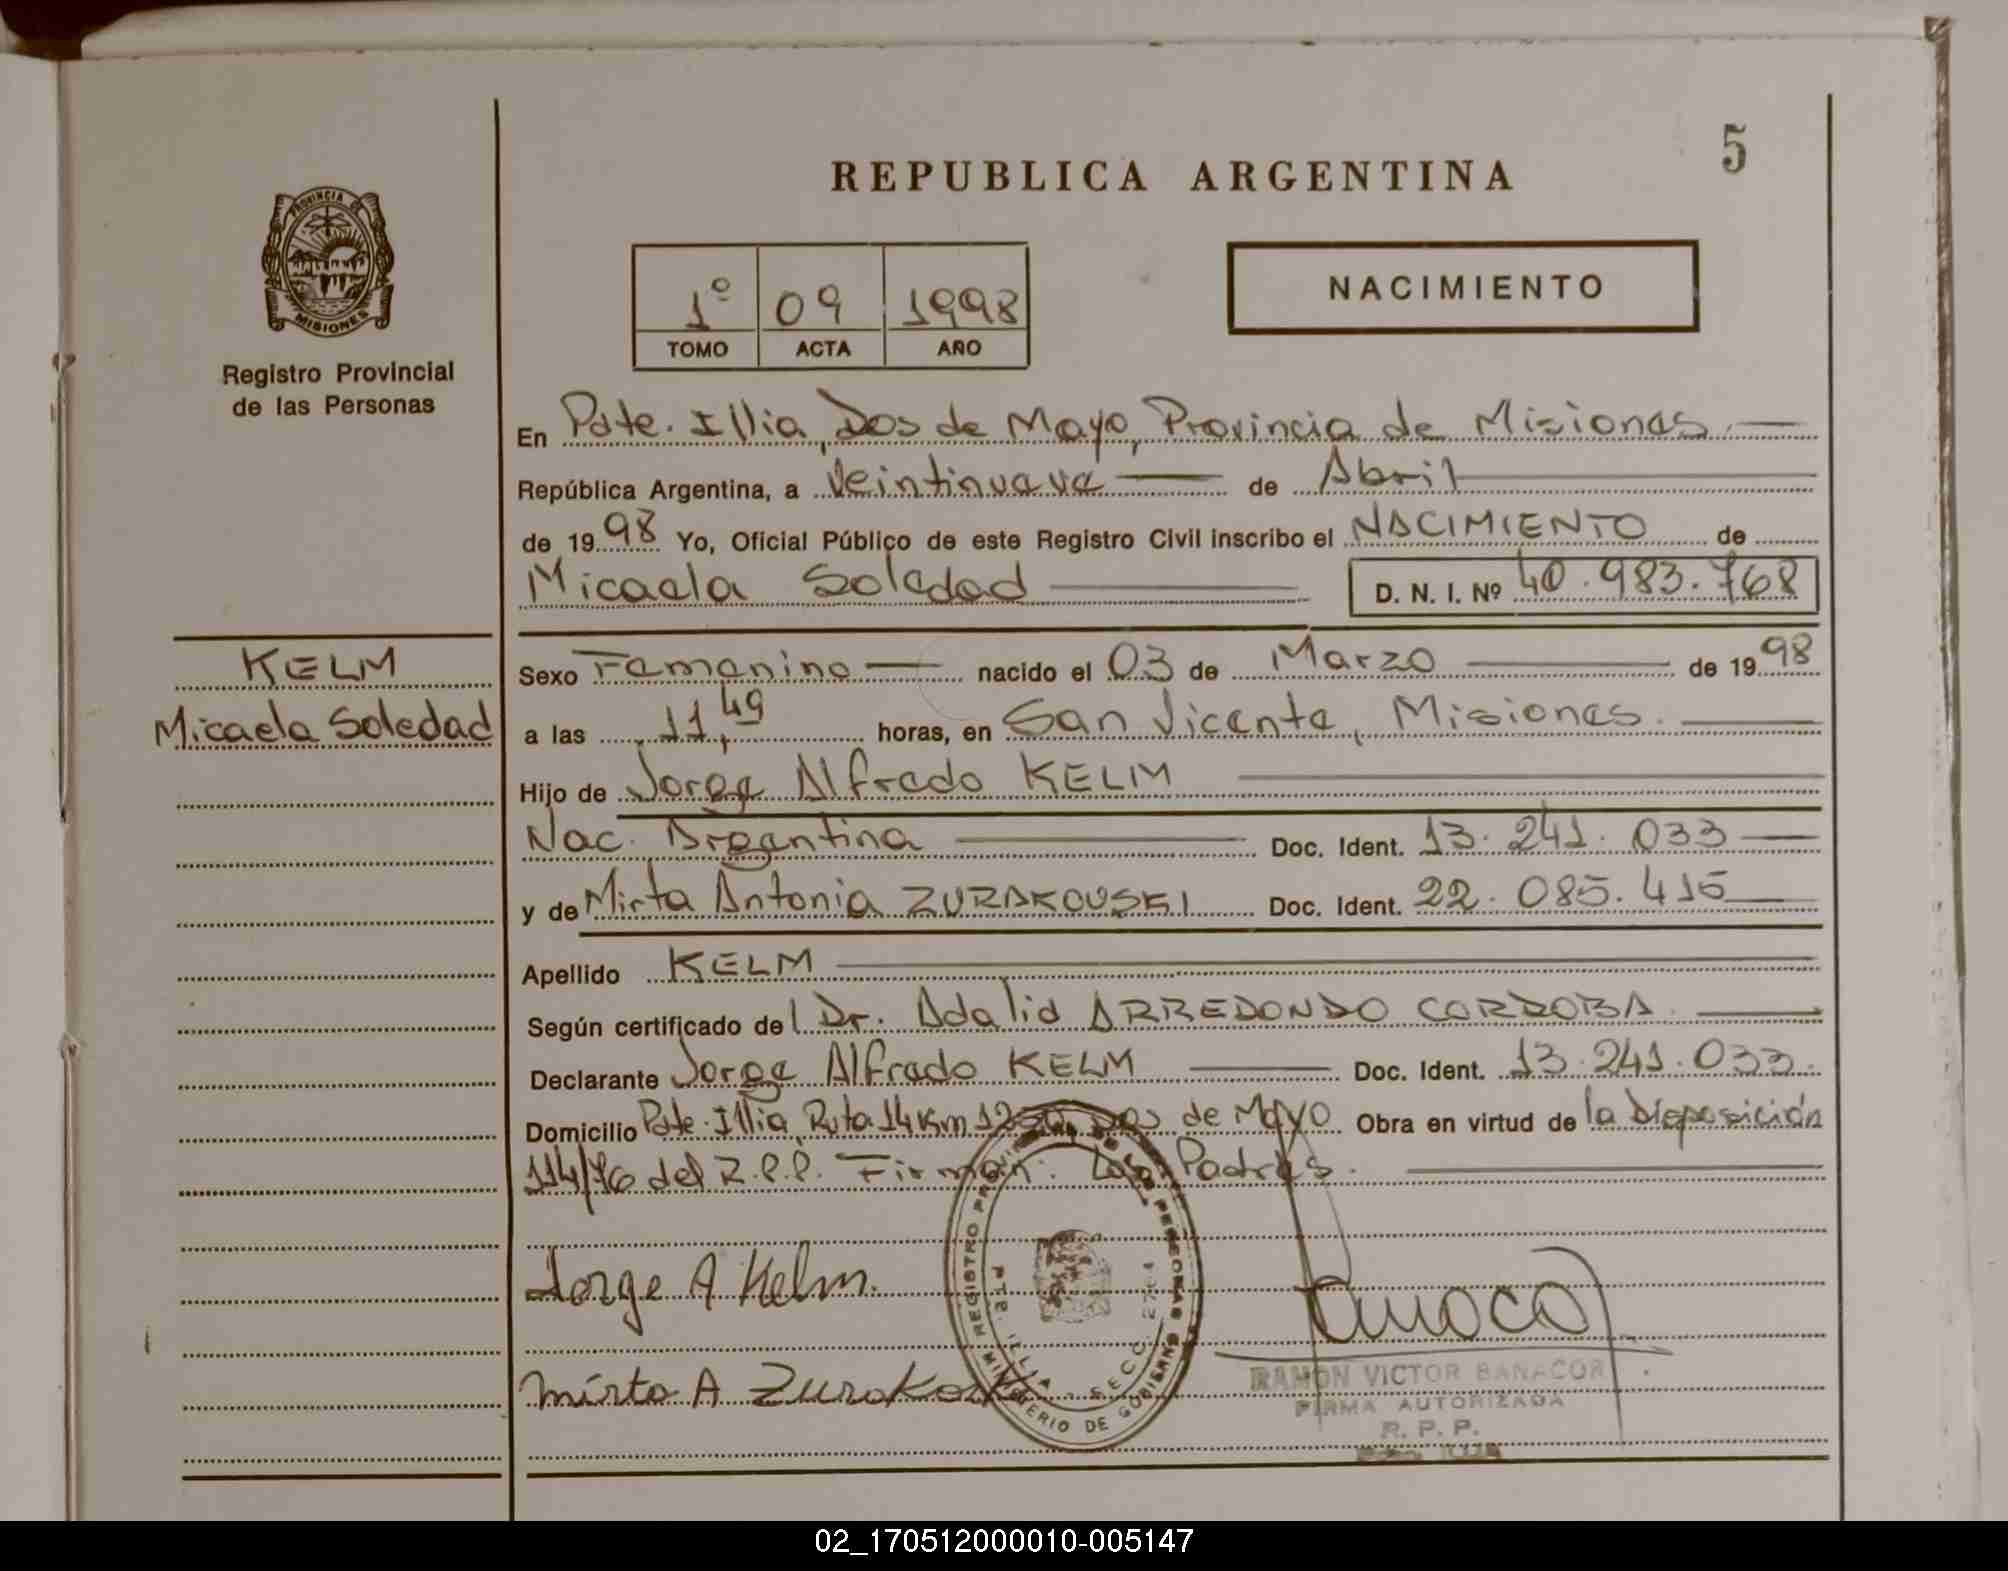 5
REPUBLICA ARGENTINA
PROVINCIA DE
MISIONES
Registro Provincial
de las Personas
1º 09 1998
TOMO ACTA AÑO
NACIMIENTO
En Pdte. Illia, Dos de Mayo, Provincia de Misiones.
República Argentina, a Veintinueve de Abril
de 1998 Yo, Oficial Público de este Registro Civil inscribo el NACIMIENTO de
Micaela Soledad D. N. I. Nº 40.983.768
KELM
Micaela Soledad
Sexo Femenino nacido el 03 de Marzo de 1998
a las 11,49 horas, en San Vicente, Misiones.
Hijo de Jorge Alfredo KELM
Nac. Argentina Doc. Ident. 13.241.033
y de Mirta Antonia ZURAKOUSKI Doc. Ident. 22.085.415
Apellido KELM
Según certificado del Dr. Adalid ARREDONDO CORDOBA
Declarante Jorge Alfredo KELM Doc. Ident. 13.241.033.
Domicilio Pdte. Illia, Ruta 14 Km Dos de Mayo Obra en virtud de la Disposición
114/76 del R.P.P. Firman: Los Padres.
Jorge A Kelm.
Mirta A
REGISTRO PROVINCIAL DE LAS PERSONAS
MINISTERIO DE GOBIERNO
PTE. ILLIA - SECC.
RAMON VICTOR BANACOR
FIRMA AUTORIZADA
R. P. P.
02_170512000010-005147